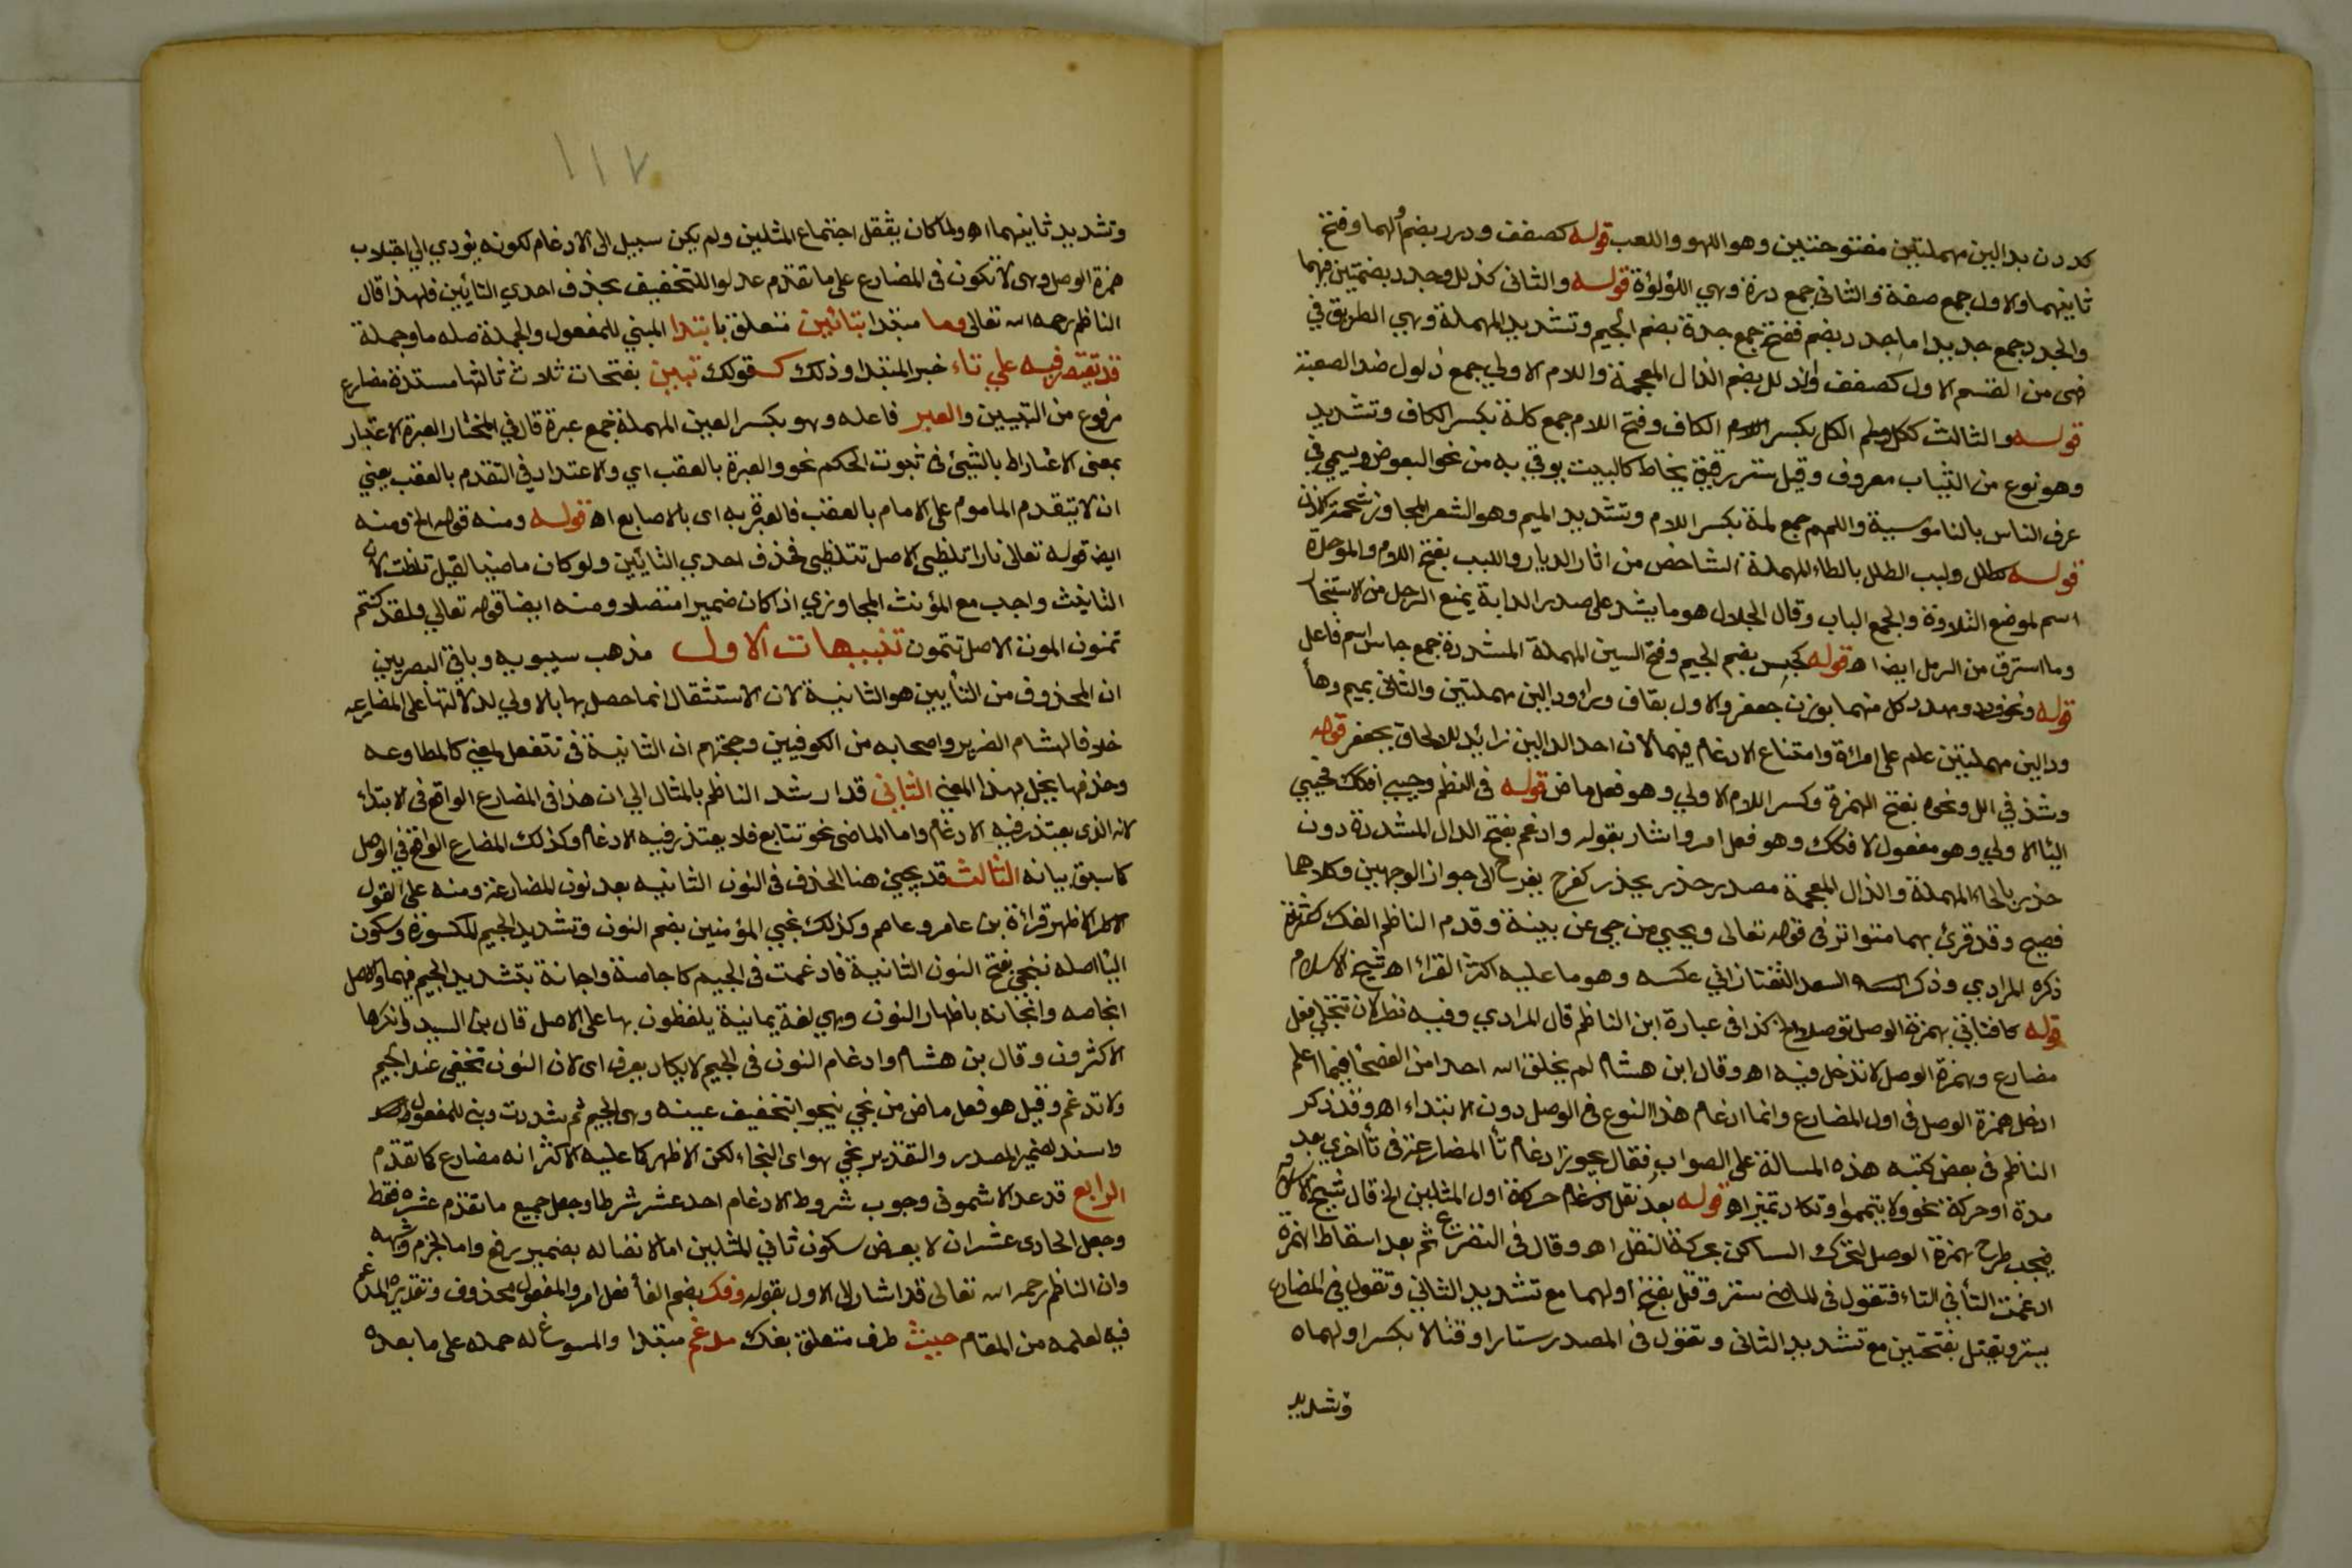 كددن بدالين مهملتين مفتوحتين وهو اللهو واللعب قوله كصفف ودرر بضم اولهما وفتح
ثانيهما والاول جمع صفة والثاني جمع درة وهي اللؤلؤة قوله والثاني كذلل وجدد بضمتين فيهما
والجدد جمع جديد اما جدد بضم ففتح جمع جدة بضم الجيم وتشديد المهملة وهي الطريق في
فهى من القسم الاول كصفف وذلل بضم الذال المعجمة واللام الاولي جمع ذلول ضد الصعبة
قوله والثالث ككلل ولمم الكلل بكسر الكاف وفتح اللام جمع كلة بكسر الكاف وتشديد
وهو نوع من الثياب معروف وقيل ستر رقيق يخاط كالبيت يوقي به من نحو البعوض ويسمي في
عرف الناس بالناموسية واللمم جمع لمة بكسر اللام وتشديد الميم وهو الشعر المجاوز شحمة الاذن
قوله كطلل ولبب الطلل بالطاء المهملة الشاخص من اثار الديار واللبب بفتح اللام والموحدة
اسم لموضع القلادة والجمع الباب وقال الجلال هو ما يشد على صدر الدابة يمنع الرحل من الاستيخا
وما استرق من الرمل ايضا اه قوله كجسس بضم الجيم وفتح السين المهملة المشددة جمع جاس اسم فاعل
قوله ونحو قردد ومهدد كل منهما بوزن جعفر والاول بقاف وراء ودالين مهملتين والثاني بميم وهأ
ودالين مهملتين علم على امراة وامتناع الادغام فيهما لان احد الدالين زائد للالحاق بجعفر قوله
وشذ في الل ونحوه بفتح الهمزة وكسر اللام الاولي وهو فعل ماض قوله في النظم وحيي افكك فحيي
اليا الاولي وهو مفعول لافكك وهو فعل امر واشار بقوله وادغم بفتح الدال المشددة دون
حذر بالحاء المهملة والذال المعجمة مصدر حذر يحذر كفرح يفرح الى جواز الوجهين وكلاهما
فصيح وقد قرئ بهما متواترا في قوله تعالى ويحيي من حيي عن بينة وقدم الناظم الفك لكثرته
ذكره المرادي وذكر السعد التفتازاني عكسه وهو ما عليه اكثر القراء اه شيخ الاسلام
قوله كافتاني بهمزة الوصل توصلا الخ كذا في عبارة ابن الناظم قال المرادي وفيه نظر لان تتجلي فعل
مضارع وهمزة الوصل لا تدخل فيه اه وقال ابن هشام لم يخلق الله احدا من الفصحا فيما اعلم
ادخل همزة الوصل في اول المضارع وانما ادغام هذا النوع في الوصل دون الابتداء اه وقد ذكر
الناظم في بعض كتبه هذه المسالة على الصواب فقال يجوز ادغام تأ المضارعة في تأ اخري بعد
مدة او حركة نحو ولا تيمموا وتكاد تميز اه قوله بعد نقل حركة اول المثلين الخ قال شيخ الاسلام
فيجب طرح همزة الوصل لتحرك الساكن بحركة النقل اه وقال في التفريع ثم بعد اسقاط الهمزة
ادغمت التأ في التاء فتقول في الماضي ستر وقتل بفتح اولهما مع تشديد الثاني وتقول في المضارع
يستر ويقتل بفتحتين مع تشديد الثاني وتقول في المصدر ستارا وقتالا بكسر اولهماه
وتشديد
١١٧
وتشديد ثانيهما اه ولما كان يثقل اجتماع المثلين ولم يكن سبيل الى الادغام لكونه يؤدي الي اجتلاب
همزة الوصل وهى لا تكون في المضارع على ما تقدم عدلوا للتخفيف بحذف احدي التائين فلهذا قال
الناظم رحمه الله تعالى وما مبتدا بتائين متعلق بابتدا المبني للمفعول والجملة صله ما وجملة
قد يقتصر فيه علي تاء خبر المبتدا وذلك كقولك تبين بفتحات ثلاث ثالثها مشددة مضارع
مرفوع من التبيين والعبر فاعله وهو بكسر العين المهملة جمع عبرة قال في المختار العبرة الاعتبار
بمعنى الاعتداد بالشئ في ثبوت الحكم نحو والعبرة بالعقب اي والاعتداد في التقدم بالعقب يعني
ان لا يتقدم الماموم على الامام بالعقب فالعبرة به اى بالاصابع اه قوله ومنه قوله الخ ومنه
ايضا قوله تعالى نارا تلظى الاصل تتلظى فحذف احدي التائين ولو كان ماضيا لقيل تلظت لان
التانيث واجب مع المؤنث المجازي اذا كان ضميرا متصلا ومنه ايضا قوله تعالي ولقد كنتم
تمنون الموت الاصل تتمنون تنبيهات الاول مذهب سيبويه وباقي البصريين
ان المحذوف من التأيين هو الثانية لان الاستثقال انما حصل بها بالاولي لدلالتها على المضارعه
خلافا لهشام الضرير واصحابه من الكوفيين وحجتهم ان الثانية في تتفعل لمعني كالمطاوعه
وحذفها يخل بهذا المعني الثاني قد ارشد الناظم بالمثال الي ان هذا في المضارع الواقع في الابتداء
لانه الذى يتعذر فيه الادغام واما الماضى نحو تتابع فلا يتعذر فيه الادغام وكذلك المضارع الواقع في الوصل
كما سبق بيانه الثالث قد يجئ هذا الحذف في النون الثانيه بعد نون المضارعة ومنه على القول
الاظهر قراءة بن عامر وعاصم وكذلك نجي المؤمنين بضم النون وتشديد الجيم المكسورة وسكون
اليا اصله ننجي بفتح النون الثانية فادغمت في الجيم كاجاصة واجانة بتشديد الجيم فيهما والاصل
انجاصه وانجانه باظهار النون وهي لغة يمانية يلفظون بها على الاصل قال بن السيد وانكرها
الاكثرون وقال بن هشام وادغام النون في الجيم لا يكاد يعرف اى لان النون تخفى عند الجيم
ولا تدغم وقيل هو فعل ماض من نجي ينجو بتخفيف عينه وهي الجيم ثم شددت وبني للمفعول
واسند لضمير المصدر والتقدير نجي هو اي النجاء لكن الاظهر كما عليه الاكثر انه مضارع كما تقدم
الرابع قد عد الاشموني وجوب شروط الادغام احد عشر شرطا وجعل جميع ما تقدم عشره فقط
وجعل الحادى عشر ان لا يعرض سكون ثاني المثلين اما لاتصاله بضمير رفع واما لجزم وشبهه
وان الناظم رحمه الله تعالى قد اشار الى الاول بقوله وفك بضم الفأ فعل امر والمفعول محذوف وتقديره المدغم
فيه لعلمه من المقام حيث ظرف متعلق بفك مدغم مبتدا والمسوغ له حمله على ما بعده